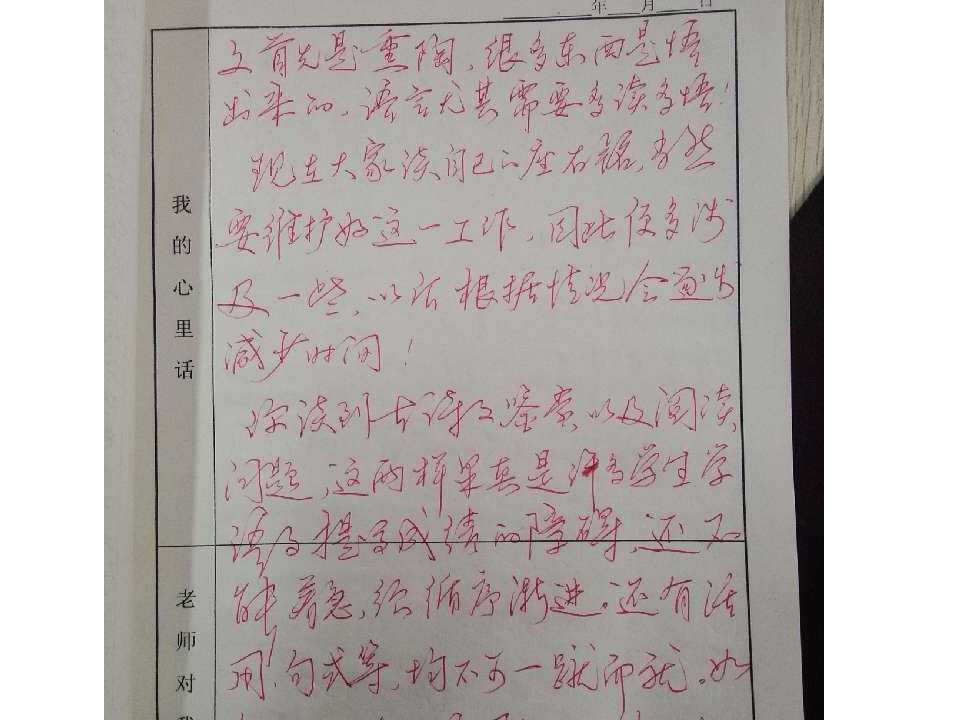 年 月 日
文首先是熏陶，很多东西是悟
出来的，语言尤其需要多读多悟！
现在大家谈自己的座右铭，当然
要维护好这一工作，因此便多涉
及一些，以后根据情况会逐步
减少时间！
你谈到古诗文鉴赏以及阅读
问题，这两样果真是许多学生学
语文提高成绩的障碍，还不
能着急，须循序渐进。还有活
用，句式等，均不可一蹴而就。如
我的心里话
老师对我